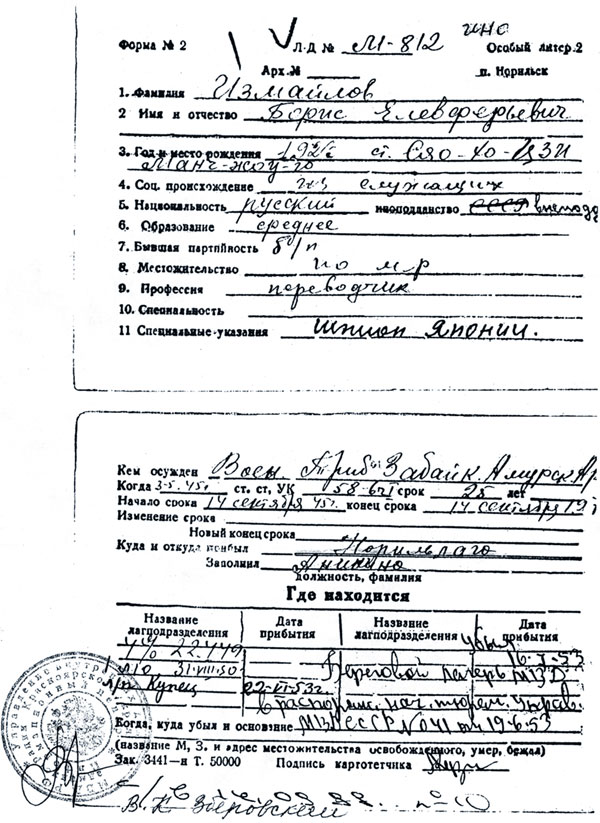 ино
Форма № 2 Л.Д № М-812 Особый литер.2
Арх.№ п. Норильск
1. Фамилия Измайлов
2 Имя и отчество Борис Елевферьевич
3. Год и место рождения ст. Сяо-Хо-Цзи
Манч-жоу-го
4. Соц. происхождение из служащих
5. Национальность русский иноподданство СССР
6. Образование среднее
7. Бывшая партийность б/п
8. Местожительство
9. Профессия переводчик
10. Специальность
11 Специальные указания Шпион Японии.
Кем осужден Воен. Триб. Забайк. Амурск.
Когда 3-5.45г. ст. ст, УК срок 25 лет
Начало срока 14 сентября 45г. конец срока 14 сентября
Изменение срока
Новый конец срока
Куда и откуда прибыл Норильлаго
Заполнил Аникино
должность, фамилия
Где находится
Название лагподразделения Дата прибытия Название лагподразделения Дата прибытия
убыл
22.4.49
л/о 31.VIII.50. Береговой лагерь МВД
л/п Купец 22-VI-53г.
в распоряж. нач. тюрем. управ.
Когда, куда убыл и основание МВД СССР № 041 от 19.6.53
(название М, З. и адрес местожительства освобожденного, умер, бежал)
Зак. 3441—н Т. 50000 Подпись картотетчика